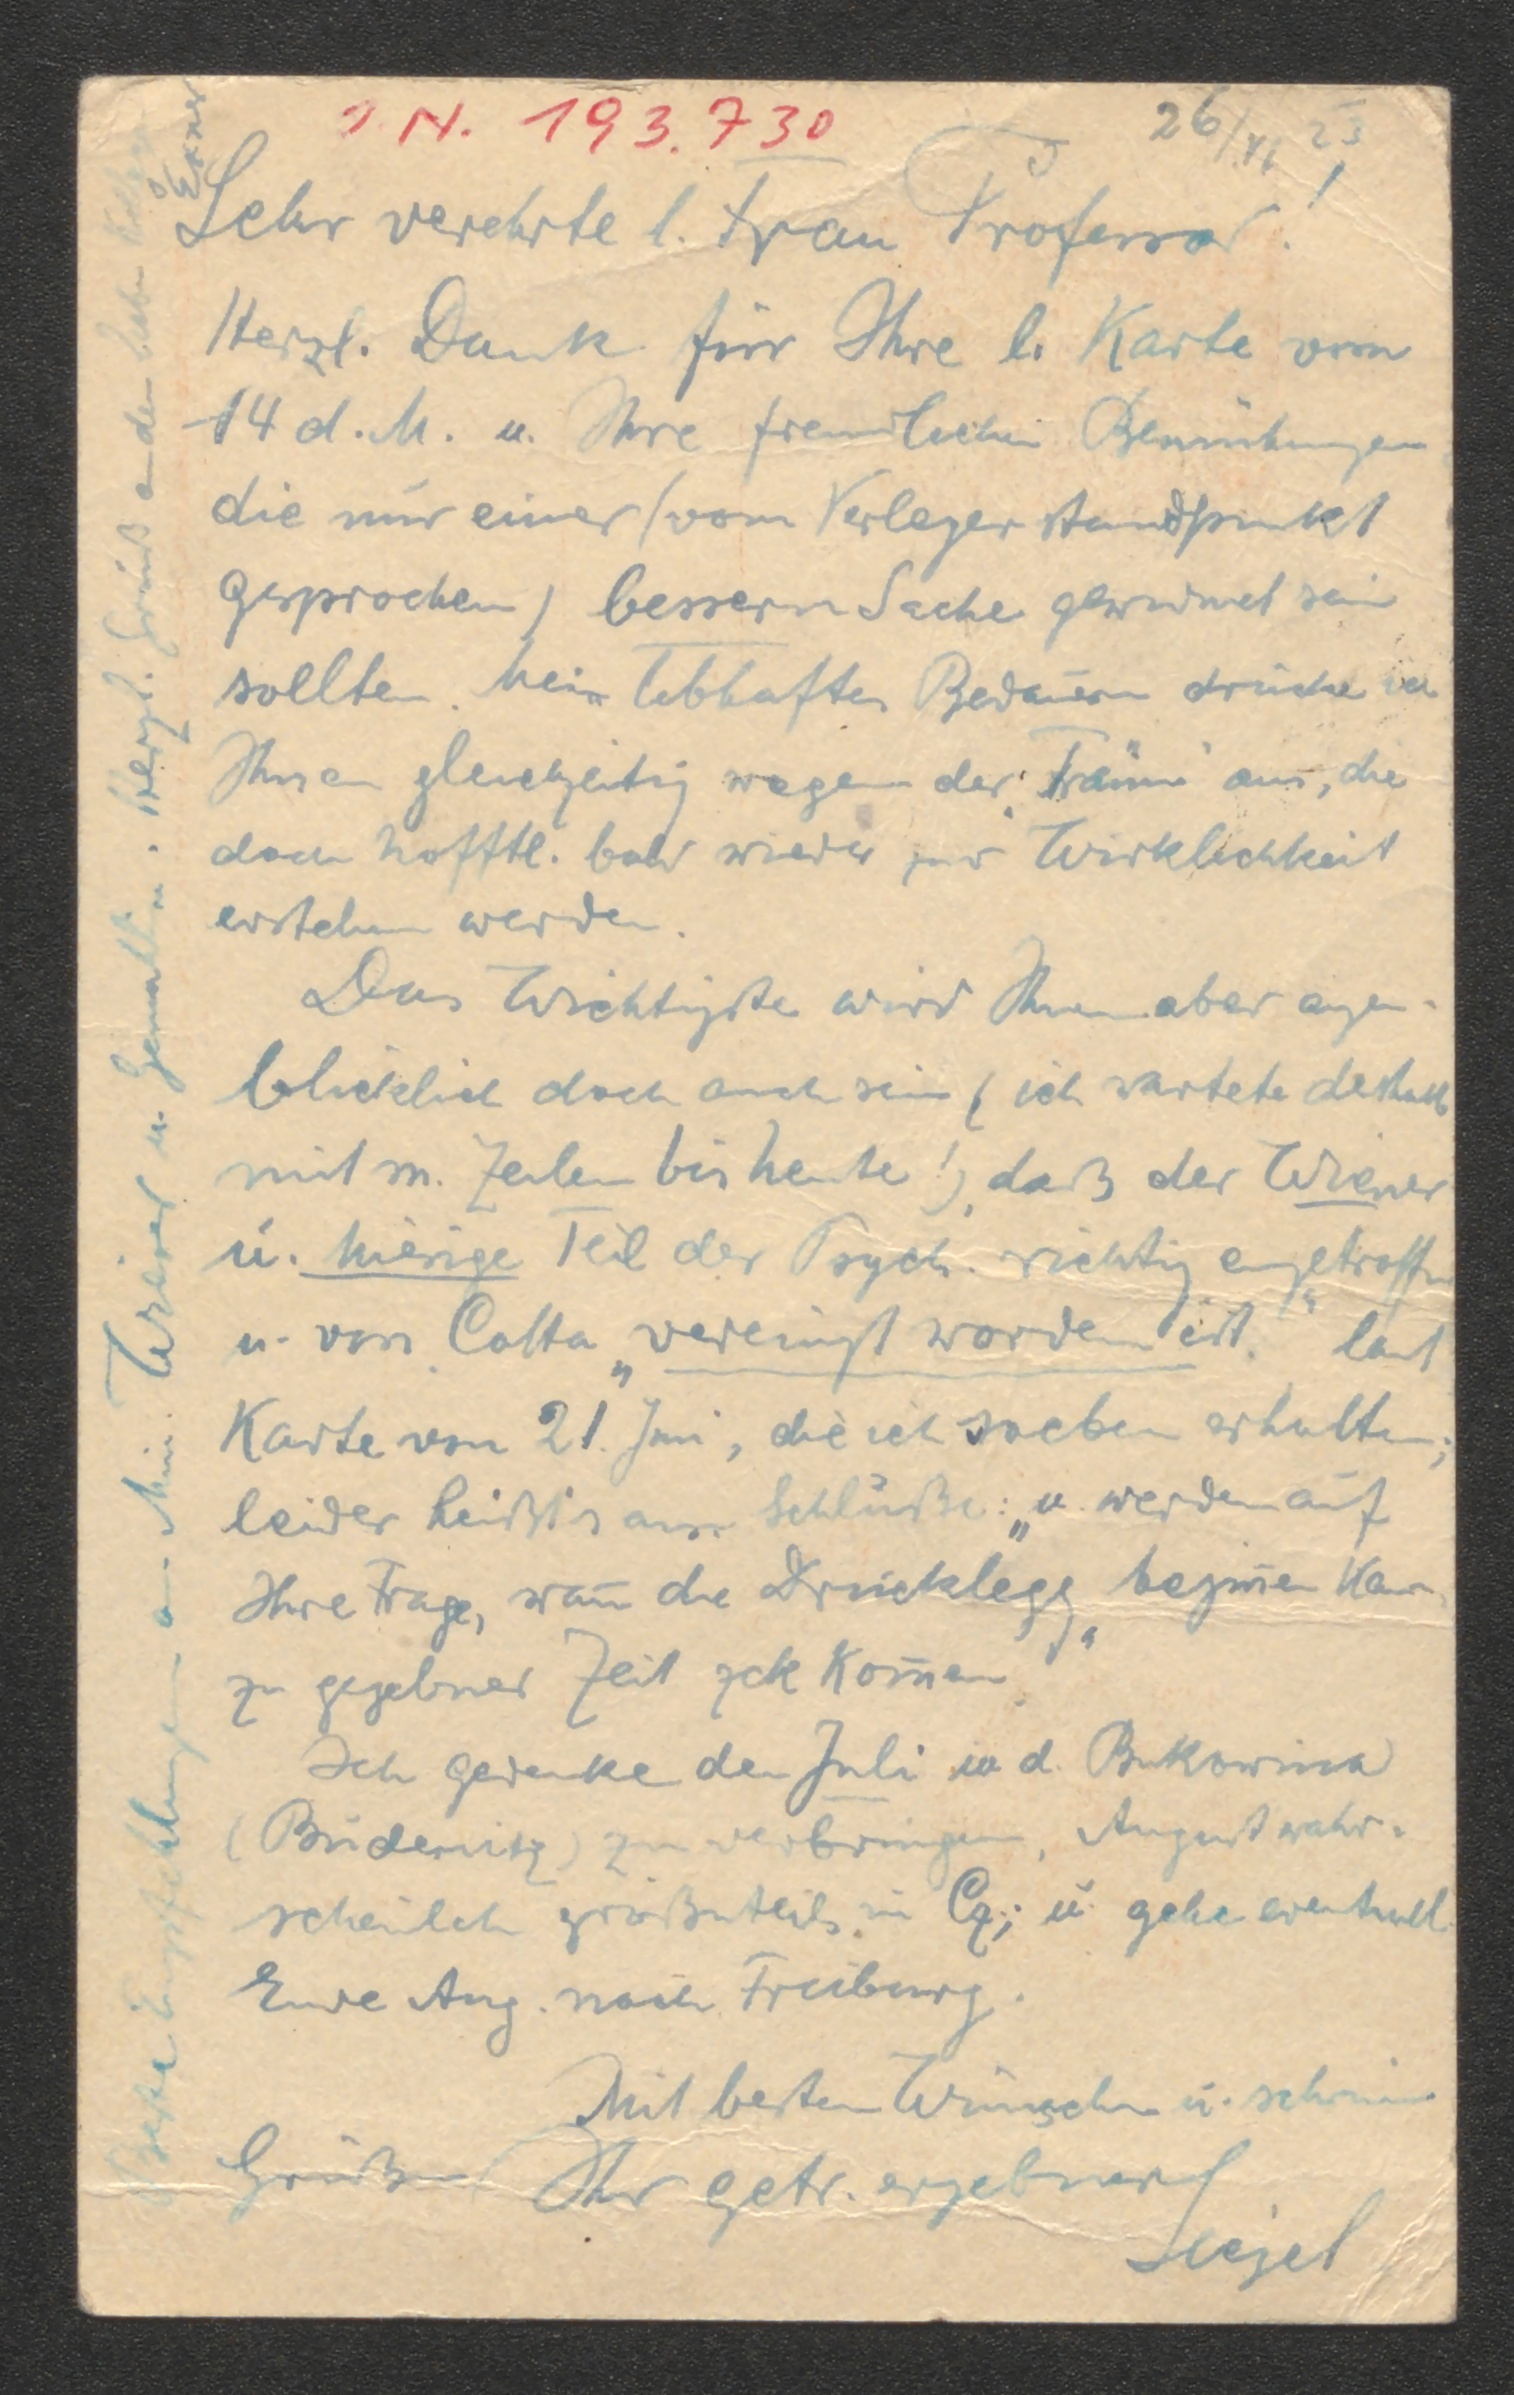 I. N. 193.730
26/VI 23
Sehr verehrte l. Frau Professor!
Herzl. Dank für Ihre l. Karte vom
14 d. M. u. Ihre freundlichen Bemühungen
die nur einer (vom Verlegerstandpunkt
gesprochen) bessern Sache gewidmet sein
sollten. Mein lebhaftes Bedauern drücke ich
Ihnen gleichzeitig wegen der aus, die
doch hofftl. bald wieder zur Wirklichkeit
erstehen werden.
Das Wichtigste wird Ihnen aber augen-
blicklich doch auch sein (ich wartete deshalb
mit m. Zeilen bis heute!), daß der Wiener
u. hiesige Teil der Psych. richtig eingetroffen
u. von Cotta „vereinigt worden ist." laut
Karte vom 21. Juni, die ich soeben erhalten;
leider heißt's am Schluße: „u. werden auf
Ihre Frage, wan̄ die Drucklegg begin̄en kan̄
zu gegebner Zeit zck kom̄en."
Ich gedenke den Juli in d. Bukowina
(Budenitz) zu verbringen, August wahr-
scheinlich größtenteils in Cz.; u. gehe eventuell
Ende Aug. nach Freiburg.
Mit besten Wünschen u. schönen
Grüßen Ihr getr. ergebner
Siegel
Beste Empfehlungen an Min. Wieser u. Gemahlin u. Herzl. Gruß an den lieben
Exner